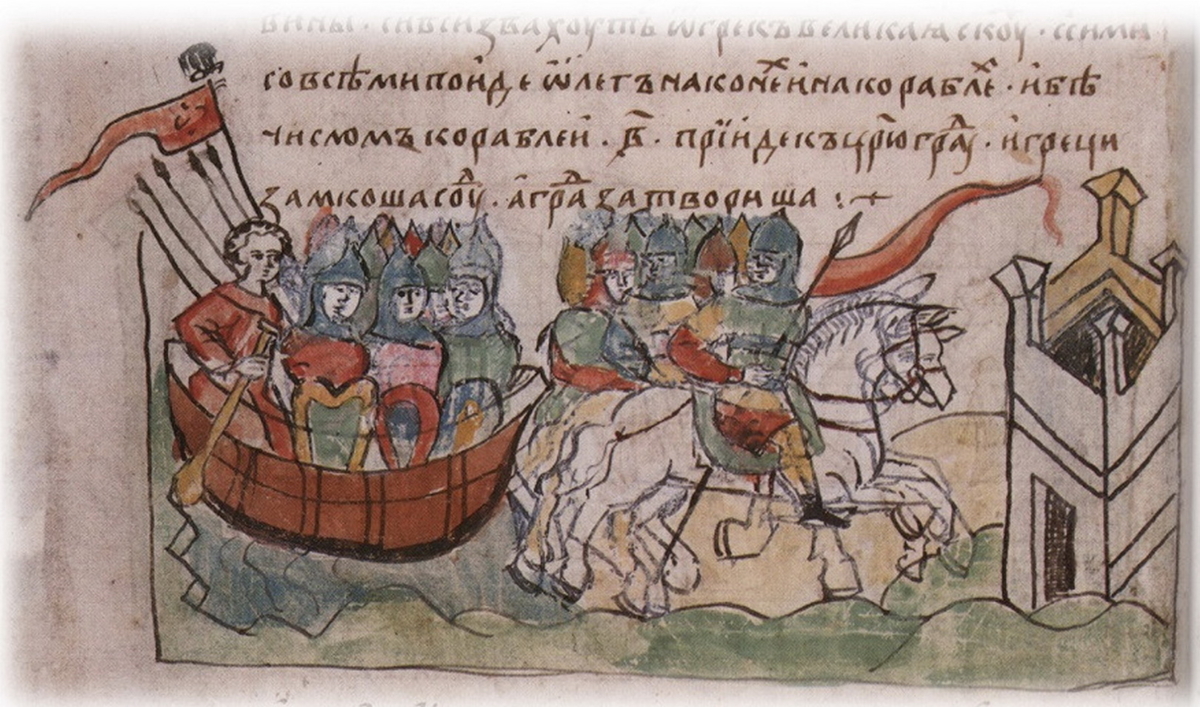 вины · си вси звахоуть ѿ грекъ великаꙗ скоу · с сими
со всѣми поиде ѡлегъ на конеⷯ и на кораблеⷯ · и бѣ
числомъ кораблеи · в҃ · прїиде къ црⷭ҇юграⷣ · и греци
замкоша соуⷣ · а граⷣ затвориша :·